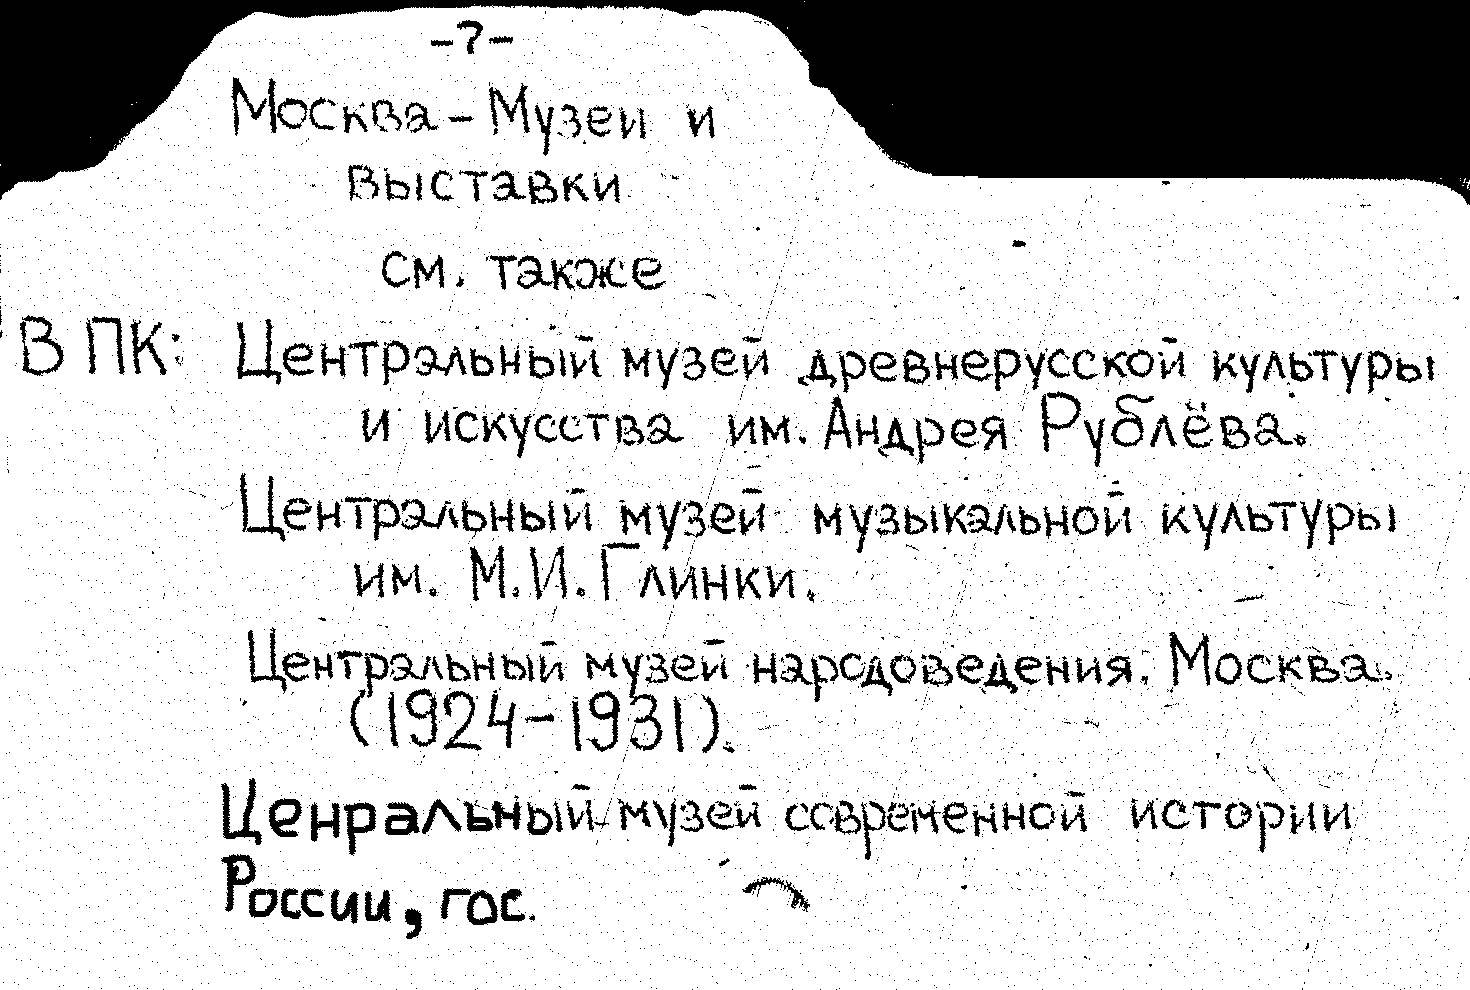 -7-
Москва - Музеи и
выставки
см. также
В ПК: Центральный музей древнерусской культуры
и искусства им. Андрея Рублёва.
Центральный музей музыкальной культуры
им. М.И. Глинки.
Центральный музей народоведения. Москва.
(1924-1931).
Ценральный музей современной истории
России, гос.